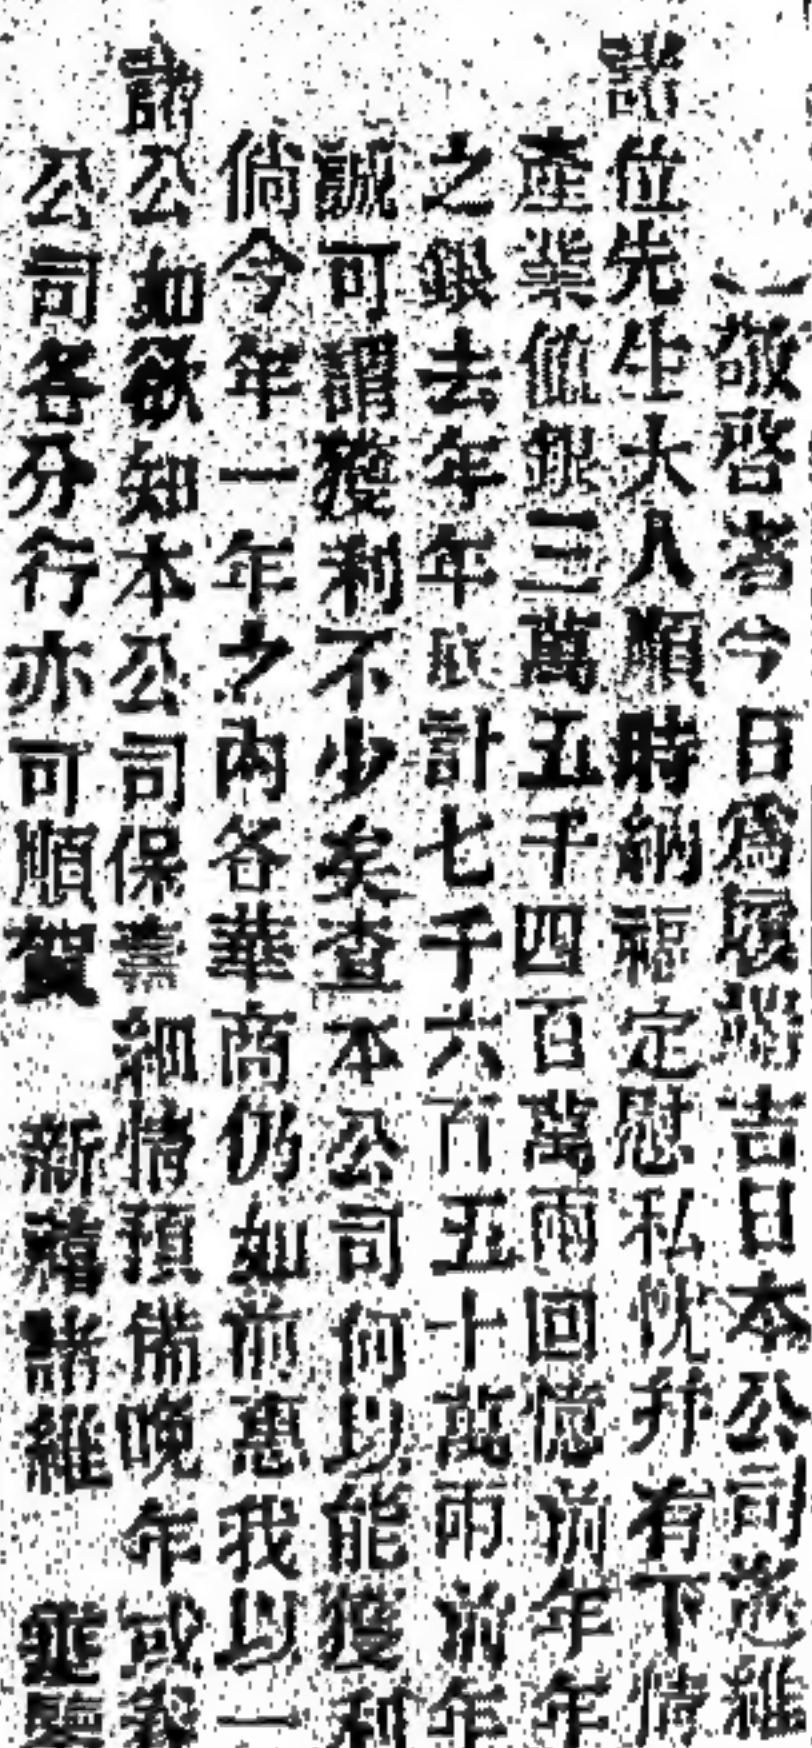 敬啓者今日為履端吉日本公司恭維
諸位先生大人順時納福定慰私忱幷有下情
產業值銀三萬五千四百萬兩回憶前年年
之銀去年年底計七千六百五十萬兩前年
誠可謂獲利不少矣查本公司何以能獲利
倘今年一年之內各華商仍如前惠我以一
諸公如欲知本公司保壽細情預備晚年或
公司各分行亦可順賀 新禧諸維 垂鑒